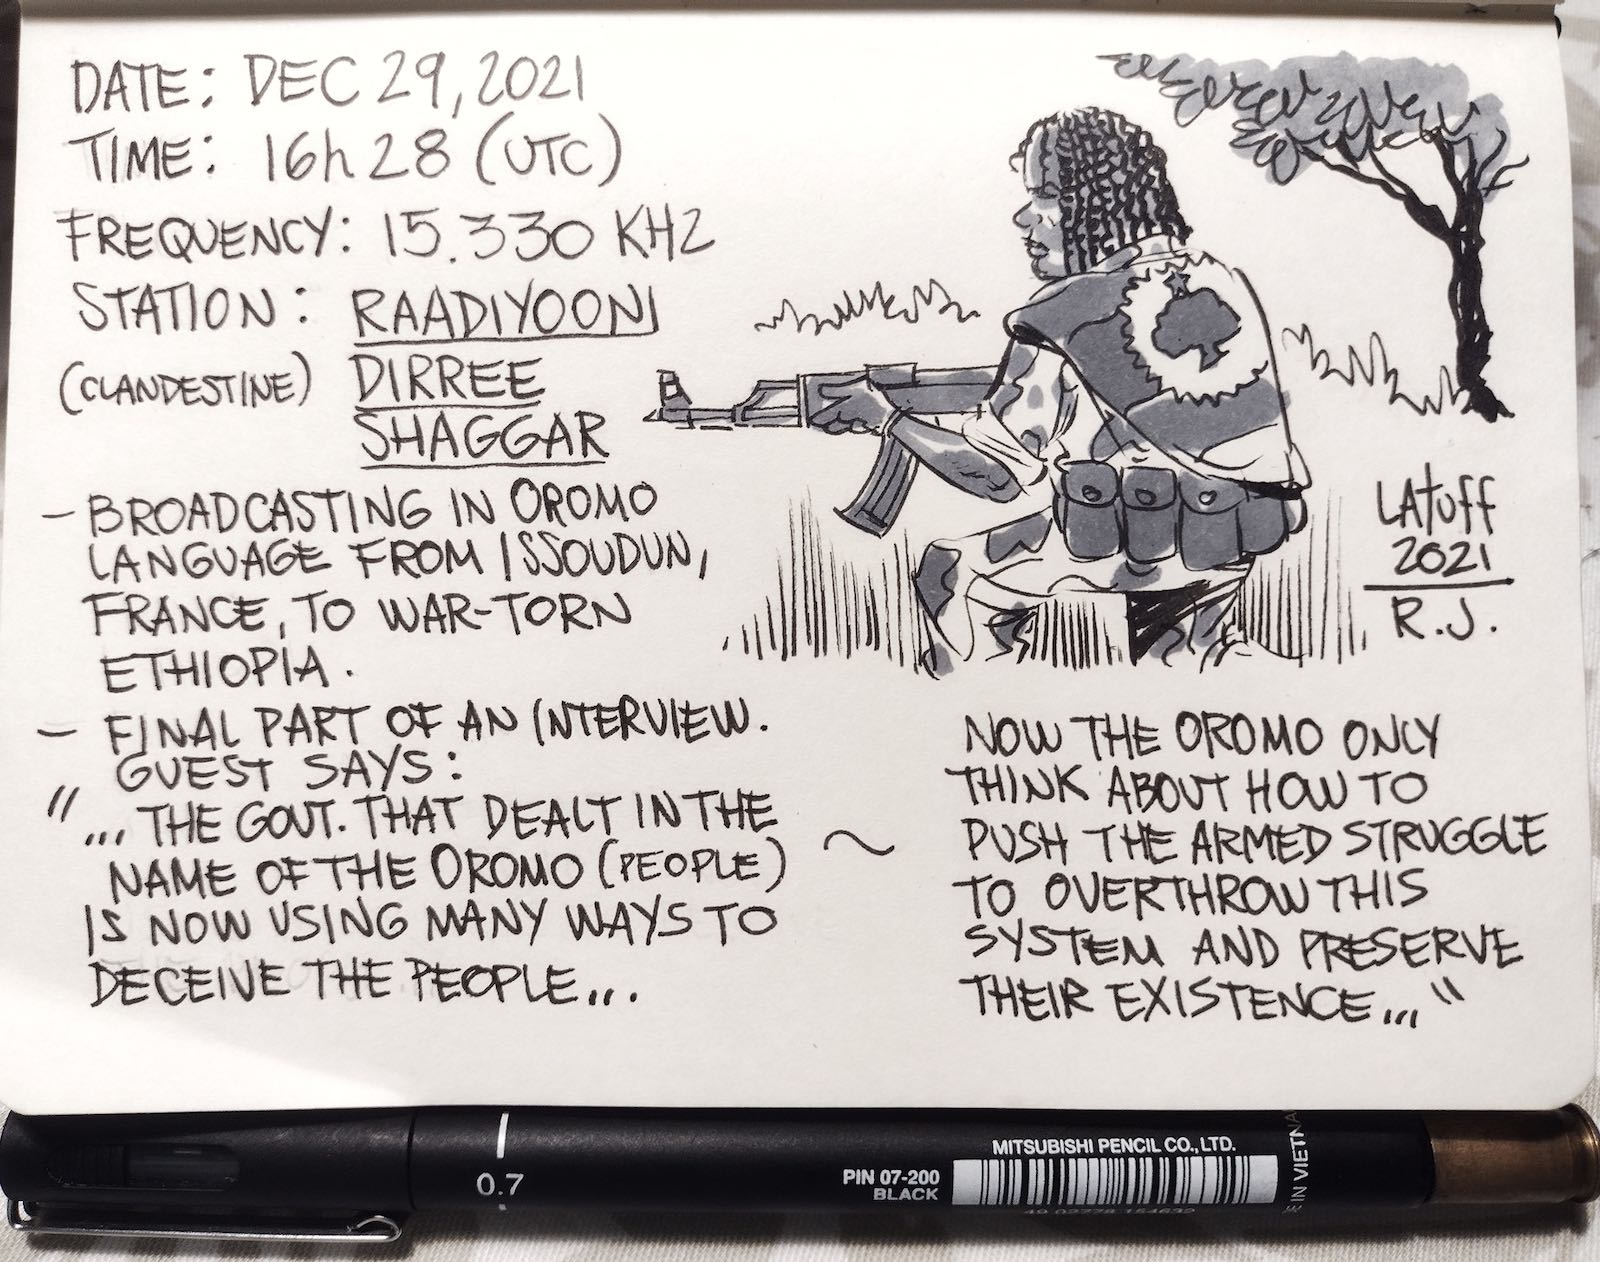 DATE: DEC 29, 2021
TIME: 16h 28 (UTC)
FREQUENCY: 15.330 KHZ
STATION: RAADIYOONI
(CLANDESTINE) DIRREE
SHAGGAR
- BROADCASTING IN OROMO
LANGUAGE FROM ISSOUDUN,
FRANCE, TO WAR-TORN
ETHIOPIA.
- FINAL PART OF AN INTERVIEW.
GUEST SAYS:
"... THE GOVT. THAT DEALT IN THE
NAME OF THE OROMO (PEOPLE)
IS NOW USING MANY WAYS TO
DECEIVE THE PEOPLE...
~
NOW THE OROMO ONLY
THINK ABOUT HOW TO
PUSH THE ARMED STRUGGLE
TO OVERTHROW THIS
SYSTEM AND PRESERVE
THEIR EXISTENCE..."
LATUFF
2021
R.J.
0.7
PIN 07-200
BLACK
MITSUBISHI PENCIL CO., LTD.
IN VIETNA